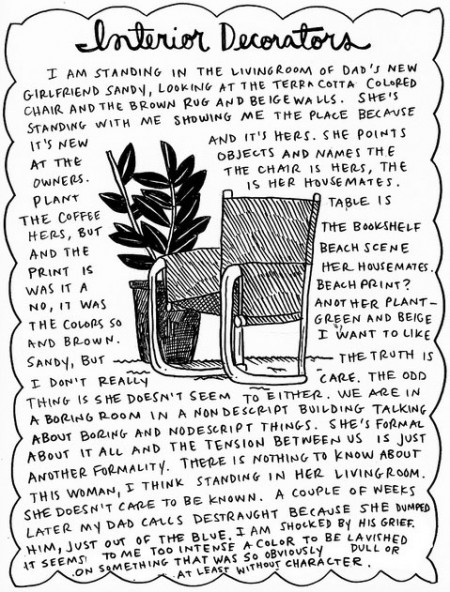 Interior Decorators
I AM STANDING IN THE LIVINGROOM OF DAD'S NEW
GIRLFRIEND SANDY, LOOKING AT THE TERRA COTTA COLORED
CHAIR AND THE BROWN RUG AND BEIGE WALLS. SHE'S
STANDING WITH ME SHOWING ME THE PLACE BECAUSE
IT'S NEW AND IT'S HERS. SHE POINTS
AT THE OBJECTS AND NAMES THE
OWNERS. THE CHAIR IS HERS, THE
PLANT IS HER HOUSEMATES.
THE COFFEE TABLE IS
HERS, BUT THE BOOKSHELF
AND THE BEACH SCENE
PRINT IS HER HOUSEMATES.
WAS IT A BEACH PRINT?
NO, IT WAS ANOTHER PLANT-
THE COLORS SO GREEN AND BEIGE
AND BROWN. I WANT TO LIKE
SANDY, BUT THE TRUTH IS
I DON'T REALLY CARE. THE ODD
THING IS SHE DOESN'T SEEM TO EITHER. WE ARE IN
A BORING ROOM IN A NONDESCRIPT BUILDING TALKING
ABOUT BORING AND NODESCRIPT THINGS. SHE'S FORMAL
ABOUT IT ALL AND THE TENSION BETWEEN US IS JUST
ANOTHER FORMALITY. THERE IS NOTHING TO KNOW ABOUT
THIS WOMAN, I THINK STANDING IN HER LIVINGROOM.
SHE DOESN'T CARE TO BE KNOWN. A COUPLE OF WEEKS
LATER MY DAD CALLS DESTRAUGHT BECAUSE SHE DUMPED
HIM, JUST OUT OF THE BLUE. I AM SHOCKED BY HIS GRIEF.
IT SEEMS TO ME TOO INTENSE A COLOR TO BE LAVISHED
ON SOMETHING THAT WAS SO OBVIOUSLY DULL OR
AT LEAST WITHOUT CHARACTER.